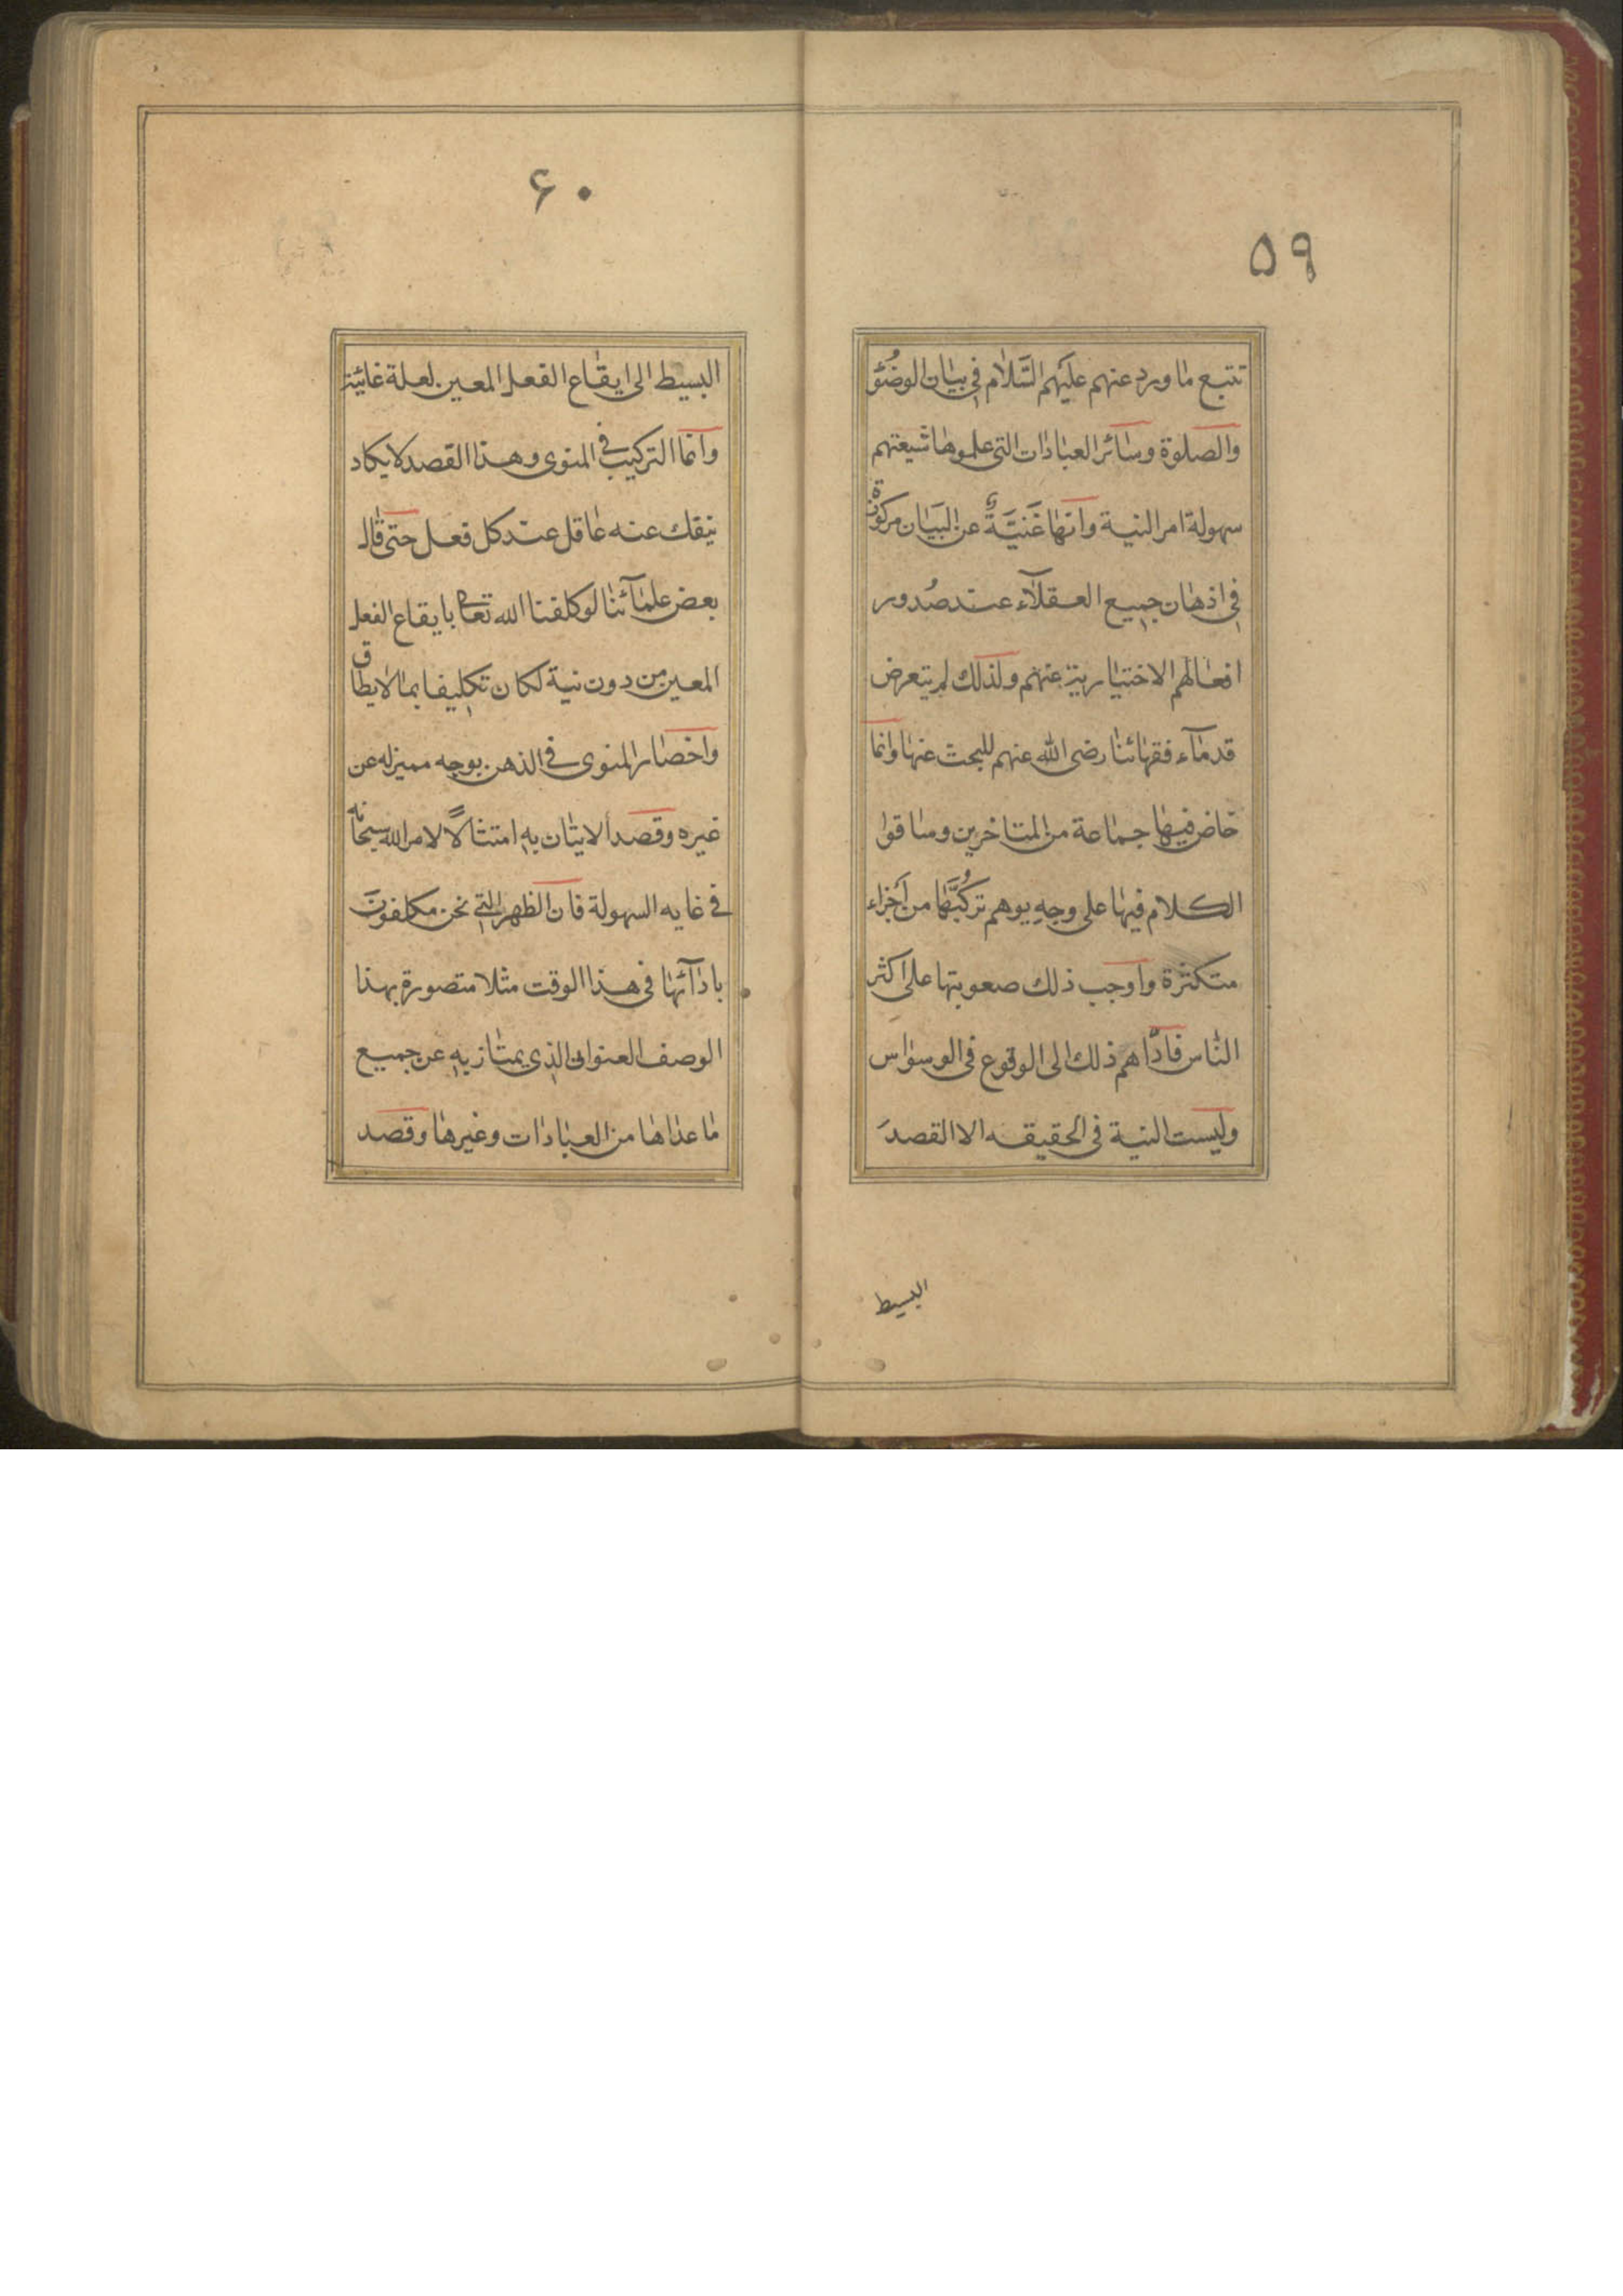 ۵۹
تتبع ما ورد عنهم علیهم السّلام فی بیان الوضُوء
والصلوة وسائر العبادات التی علموها شیعتهم
سهولة امر النیة وانها غَنیَّةٌ عن البیَان مرکوزة
فی اذهان جمیع العقلآء عند صُدور
افعالهم الاختیاریة عنهم ولذلك لم یتعرض
قدمآء فقهائنا رضی الله عنهم للبحث عنها وانما
خاض فیها جماعة من المتاخرین وساقوا
الکلام فیها علی وجهٍ یوهم ترکُبَّها من اَجزاء
متکثرة واوجب ذلك صعوبتها علی اکثر
الناس فادّاهم ذلك الی الوقوع فی الوسواس
ولیست النیة فی الحقیقه الا القصدَ
البسیط
۶۰
البسیط الی ایقاع الفعل المعین لعلة غائیة
وانما الترکیب فی المنوی وهذا القصد لایکاد
ینفك عنه عاقل عند کل فعل حتی قال
بعض علمآئنا لو کلفنا الله تعا بایقاع الفعل
المعین من دون نیة لکان تکلیفا بما لایطاق
واحضار المنوی فی الذهن بوجه ممیز له عن
غیره وقصد الاتیان به امتثالاً لامر الله سبحانه
فی غایه السهولة فان الظهر التی نحن مکلفونَ
بادآئها فی هذا الوقت مثلا متصورة بهذا
الوصف العنوانی الذی یمتاز به عن جمیع
ما عداها من العبادات وغیرها وقصد